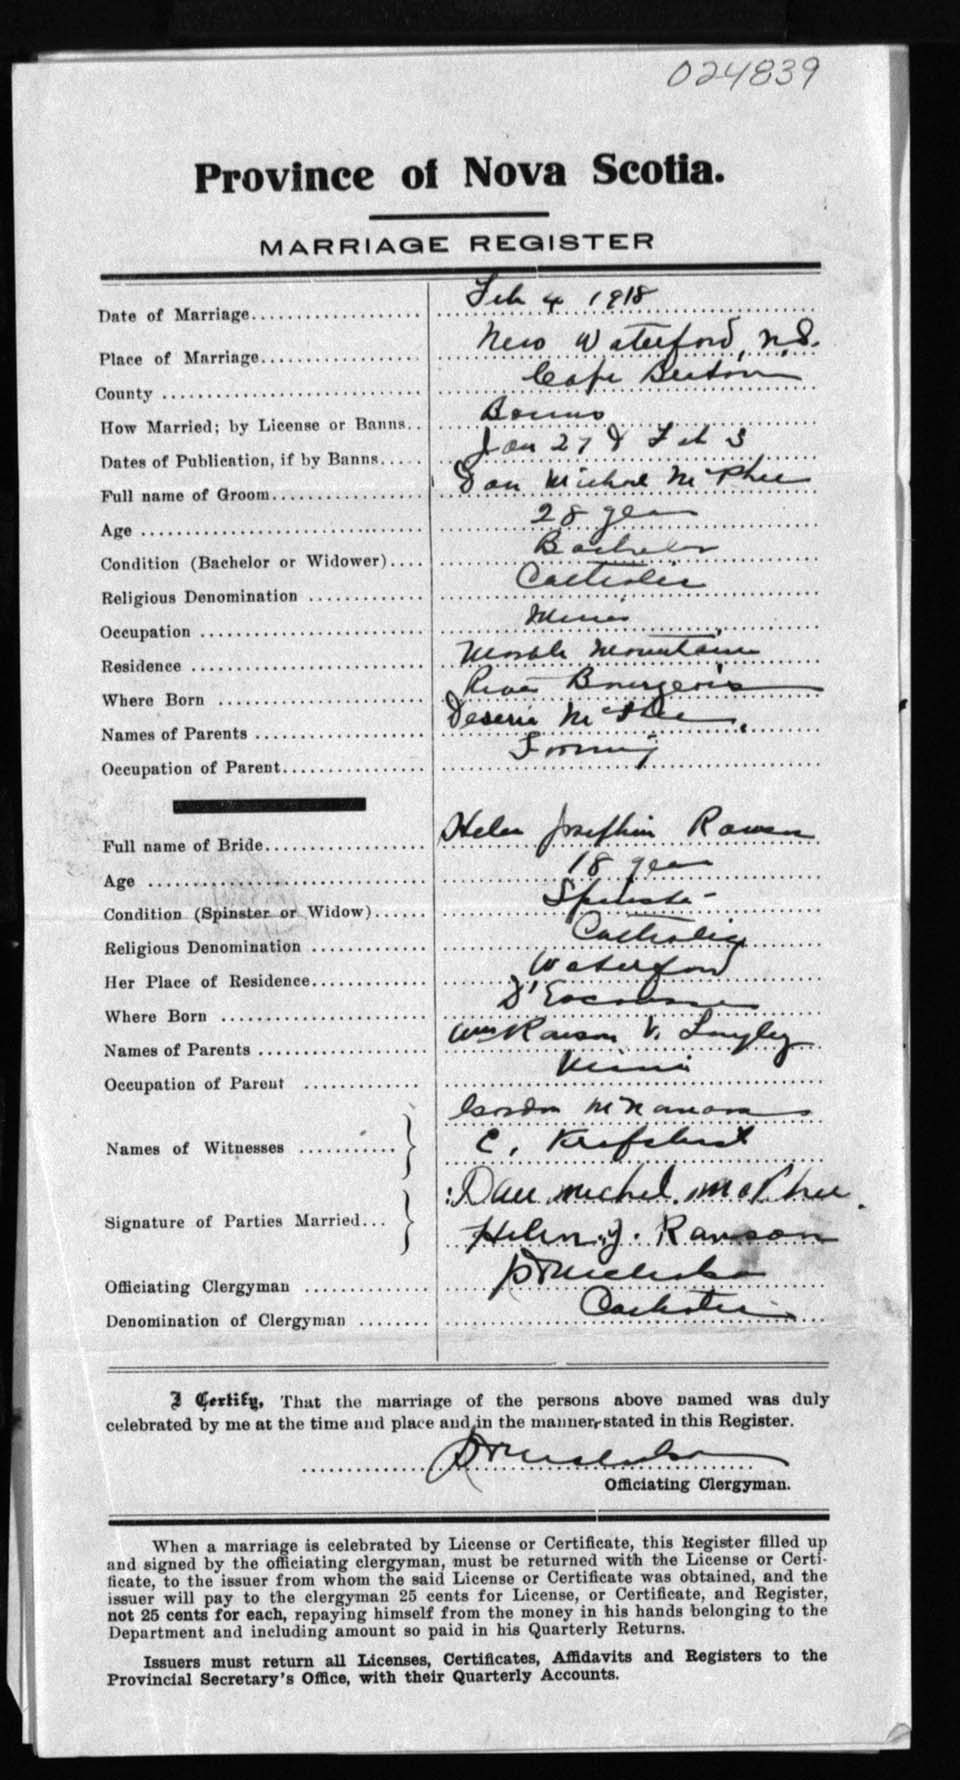 024839
Province of Nova Scotia.
MARRIAGE REGISTER
Date of Marriage Feb 4 1918
Place of Marriage New Waterford, N.S.
County Cape Breton
How Married; by License or Banns Banns
Dates of Publication, if by Banns Jan 27 & Feb 3
Full name of Groom Dan Michael McPhee
Age 28 years
Condition (Bachelor or Widower) Bachelor
Religious Denomination Catholic
Occupation Miner
Residence Marble Mountain
Where Born River Bourgeois
Names of Parents McPhee
Occupation of Parent Farming
Full name of Bride Helen Josephine
Age 18 years
Condition (Spinster or Widow) Spinster
Religious Denomination Catholic
Her Place of Residence Waterford
Where Born D'Escousse
Names of Parents Wm Ranson & Langley
Occupation of Parent Miner
Names of Witnesses Gordon
C.
Signature of Parties Married Dan Michel McPhee
Helen J. Ranson
Officiating Clergyman
Denomination of Clergyman Catholic
I Certify, That the marriage of the persons above named was duly
celebrated by me at the time and place and in the manner stated in this Register.
Officiating Clergyman.
When a marriage is celebrated by License or Certificate, this Register filled up
and signed by the officiating clergyman, must be returned with the License or Certi-
ficate, to the issuer from whom the said License or Certificate was obtained, and the
issuer will pay to the clergyman 25 cents for License, or Certificate, and Register,
not 25 cents for each, repaying himself from the money in his hands belonging to the
Department and including amount so paid in his Quarterly Returns.
Issuers must return all Licenses, Certificates, Affidavits and Registers to the
Provincial Secretary's Office, with their Quarterly Accounts.